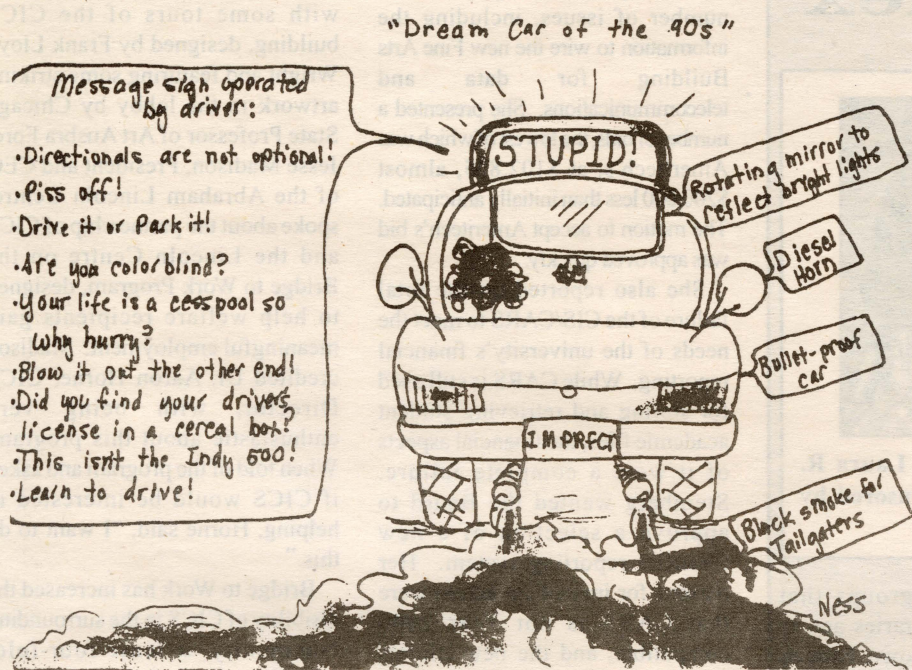 "Dream Car of the 90s"
Message sign operated
by driver:
•Directionals are not optional!
•Piss off!
•Drive it or Park it!
•Are you colorblind?
•Your life is a cesspool so
why hurry?
•Blow it out the other end!
•Did you find your drivers
license in a cereal box?
•This isn't the Indy 500!
•Learn to drive!
STUPID!
Rotating mirror to
reflect bright lights
Diesel
Horn
Bullet-proof
car
IMPRFCT
Black smoke for
Tailgaters
Ness